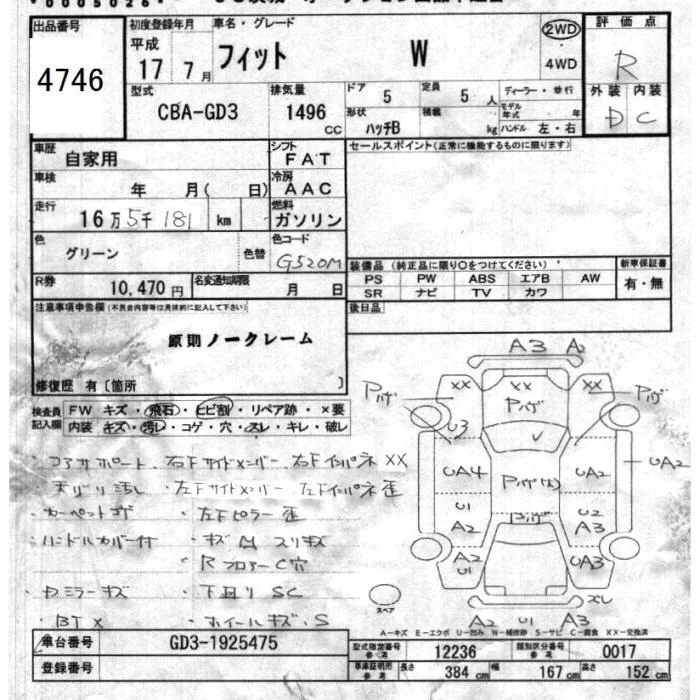 出品番号
4746
初度登録年月
平成
17 7月
車名・グレード
フィット W
2WD
・
4WD
評価点
R
外装 内装
D C
型式
CBA-GD3
排気量
1496
CC
ドア 5
定員 5 人
形状 ハッチB
積載 kg
ディーラー・並行
モデル年式 年
ハンドル 左・右
車歴
自家用
シフト
FAT
車検
年 月( 日)
冷房
AAC
走行
16万5千181 km
燃料
ガソリン
色
グリーン
色替
色コード
G520M
R券
10,470円
名変通知期限
月 日
セールスポイント(正常に機能するものに限ります)
装備品(純正品に限り〇をつけてください)
PS PW ABS エアB AW
SR ナビ TV カワ
新車保証書
有・無
後日品
注意事項申告欄(不具合内容等は具体的に記入して下さい)
原則ノークレーム
修復歴 有〔箇所 〕
検査員記入欄
FW キズ・飛石・ヒビ割・リペア跡・×要
内装 キズ・汚レ・コゲ・穴・スレ・キレ・破レ
・コアサポート、右フサイドメンバー 右フインパネ XX
天バリ汚し ・左フサイドメンバー 左フインパネ歪
・カーペットコゲ ・左フピラー歪
・ハンドルカバー付 ・キズ凹スリキズ
・RフロアーC穴
・Dミラーキズ ・下回りSC
・BT X ・ホイールキズ・S
A3 A2
Pハゲ XX XX XX Pハゲ
Pハゲ
U3
UA4 Pハゲ UA2 UA2
U1 U2
A2 Pハゲ A3
A2 U1 UA3
スレ
A2 U1 A3
スペア
A-キズ E-エクボ U-凹み W-補修跡 S-サビ C-腐食 XX-交換済
車台番号
GD3-1925475
登録番号
型式指定番号 参考
12236
類別区分番号 参考
0017
車庫証明用 参考
長さ 384 cm
幅 167 cm
高さ 152 cm